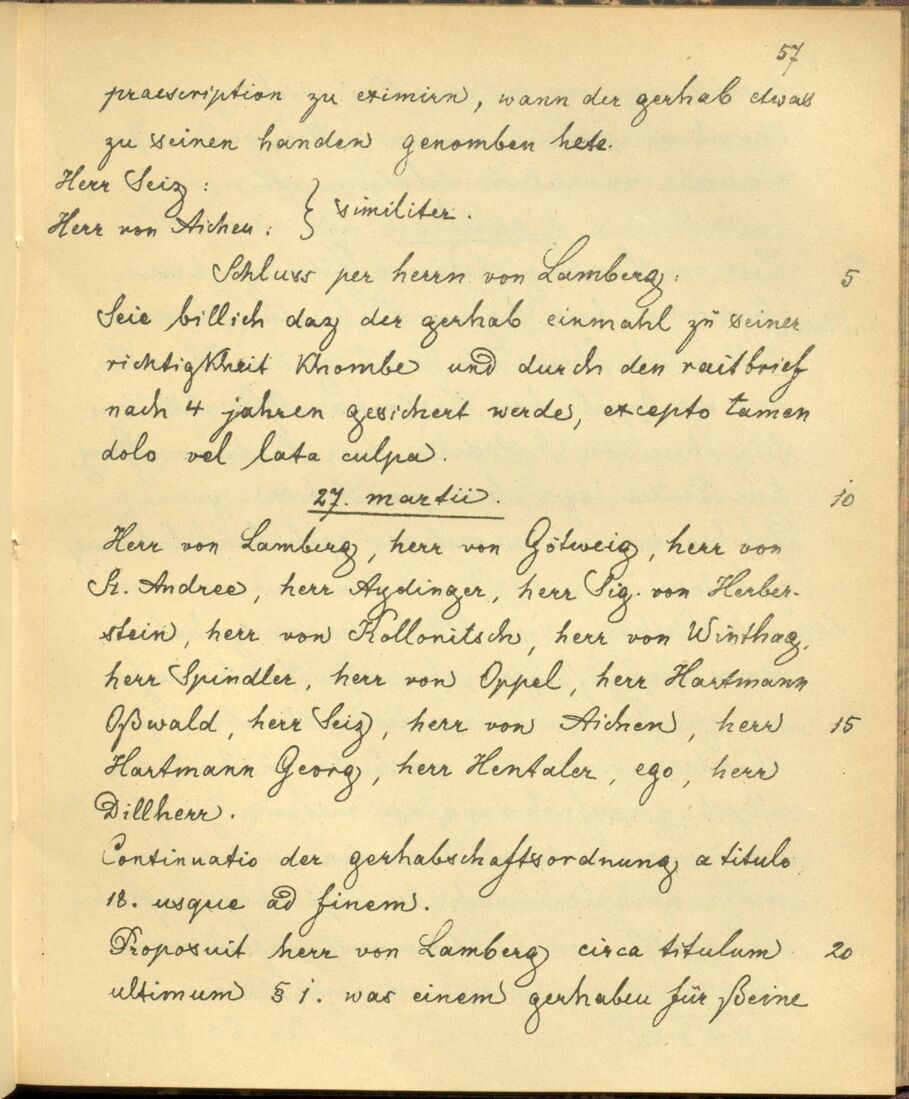 57
praescription zu eximirn, wann der gerhab etwas
zu seinen handen genomben hete.
Herr Seiz :
Herr von Aichen : } similiter.
Schluss per herrn von Lamberg : 5
Seie billich daz der gerhab einmahl zu seiner
richtigkheit khombe und durch den raitbrief
nach 4 jahren gesichert werde, excepto tamen
dolo vel lata culpa.
27. martii. 10
Herr von Lamberg, herr von Götweig, herr von
St. Andree, herr Aydinger, herr Sig. von Herber-
stein, herr von Kollonitsch, herr von Winthag,
herr Spindler, herr von Oppel, herr Hartmann
Oßwald, herr Seiz, herr von Aichen, herr 15
Hartmann Georg, herr Hentaler, ego, herr
Dillherr.
Continuatio der gerhabschaftsordnung a titulo
18. usque ad finem.
Proposuit herr von Lamberg circa titulum 20
ultimum § 1. was einem gerhaben für ßeine